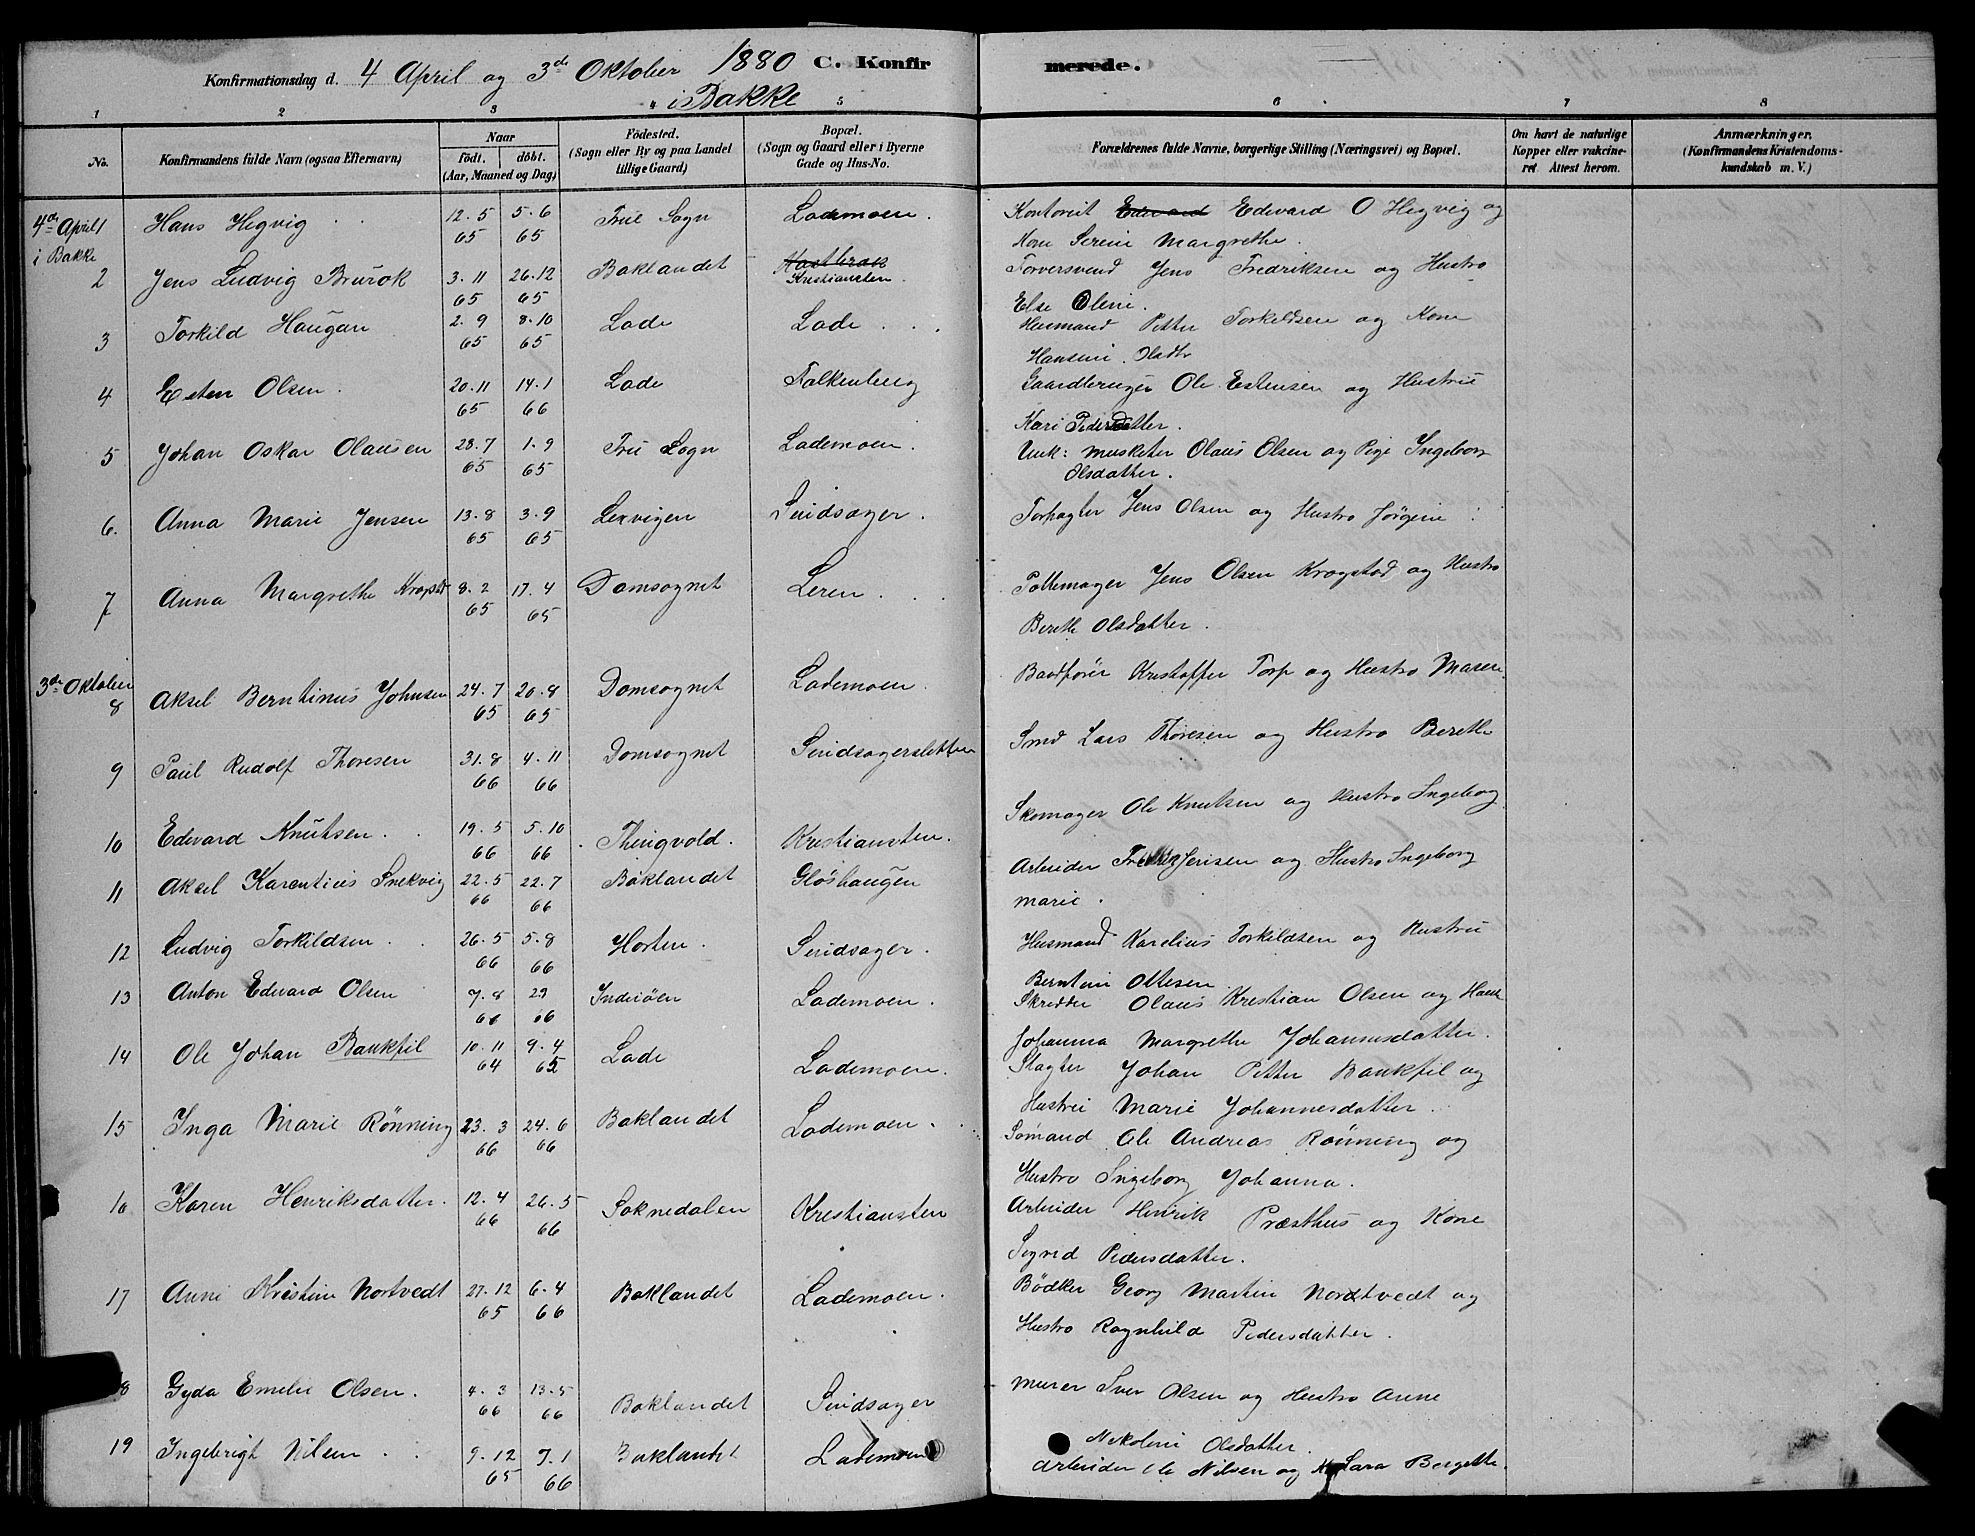 Konfirmationsdag d. 4 April og 3de Oktober 1880 C. Konfirmerede.
i Bakke
1 2 3 5 6 7 8
No.
Konfirmandens fulde Navn (ogsaa Efternavn)
Naar
födt. döbt.
(Aar, Maaned og Dag)
Födested.
(Sogn eller By og paa Landet
tillige Gaard)
Bopæl.
(Sogn og Gaard eller i Byerne
Gade og Hus-No.
Forældrenes fulde Navne, borgerlige Stilling (Næringsvei) og Bopæl.
Om havt de naturlige
Kopper eller vakcine-
ret Attest herom.
Anmærkninger.
(Konfirmandens Kristendoms-
kundskab m. V.)
4de April 1 Hans Hegvig 12.5 5.6 Frue Sogn Lademoen. Kontorist Edevard O Hegvig og
i Bakke 65 65 Kone Serine Margrethe.
2 Jens Ludvig Brurok 3.11 26.12 Baklandet Kristiansten Farversvend Jens Fredriksen og Hustro
65 65 Else Oline.
3 Torkild Haugan 2.9 8.10 Lade Lade Husmand Petter Torkildsen og Kone
65 65 Hansine Olsdtr
4 Esten Olsen. 20.11 14.1 Lade Falkenberg Gaardbruger Ole Estensen og Hustru
65 66 Kari Pedersdatter.
5 Johan Oskar Olausen 28.7 1.9 Frue Sogn Lademoen. Uæk: Musketer Olaus Olsen og Pige Ingeborg
65 65 Olsdatter.
6. Anna Marie Jensen 13.8 3.9 Lexvigen Sindsager. Forpagter Jens Olsen og Hustro Jørgine
65 65
7 Anna Margrethe Krogstad 8.2 17.4 Domsognet Leren Pottemager Jens Olsen Krogstad og Hustro
65 65 Berethe Olsdatter.
3de Oktober
8 Aksel Berntinus Johnsen 24.7 20.8 Domsognet Lademoen. Baadfører Kristoffer Torp og Hustro Maren
65 65
9 Paul Rudolf Thoresen 31.8 4.11 Domsognet Sindsagersletten Smed Lars Thoresen og Hustro Berethe
66 66
10 Edevard Knutsen. 19.5 5.10 Thingvold. Kristiansten. Skomager Ole Knutsen og Hustro Ingeborg
66 66
11 Aksel Karentius Snekvig 22.5 22.7 Baklandet Gløshaugen Arbeider Jensen og Hustro Ingeborg
66 66 Marie.
12 Ludvig Torkildsen 26.5 5.8 Horten. Sindsager. Husmand Karelius Torkildsen og Hustru
66 66 Berntine Ottesen
13 Anton Edvard Olsen 7.8 29 Inderøen Lademoen. Skredder Olaus Kristian Olsen og
66 66 Johanna Margrethe Johannesdatter.
14 Ole Johan Bankfil 10.11 9.4 Lade Lademoen. Slagter Johan Petter Bankfil og
64 65 Hustru Marie Johannesdatter
15 Inga Marie Rønning 23.3 24.6 Baklandet Lademoen. Sømand Ole Andreas Rønning og
66 66 Hustro Ingeborg Johanna.
16 Karen Henriksdatter. 12.4 26.5 Soknedalen Kristiansten Arbeider Henrik Præsthus og Kone
66 66 Sigrid Pedersdatter.
17 Anne Kristine Nortvedt 27.12 6.4 Baklandet Lademoen. Bødker Georg Martin Nordtvedt og
65 66 Hustro Ragnhild Pedersdatter.
8 Gyda Emelie Olsen. 4.3 13.5 Baklandet Sindsager Murer Iver Olsen og Hustro Anne
66 66 Nikoline Olsdatter.
19 Ingebrigt Nilsen 9.12 7.1 Baklandet Lademoen Arbeider Ole Nilsen og Sara Bergette.
65 66